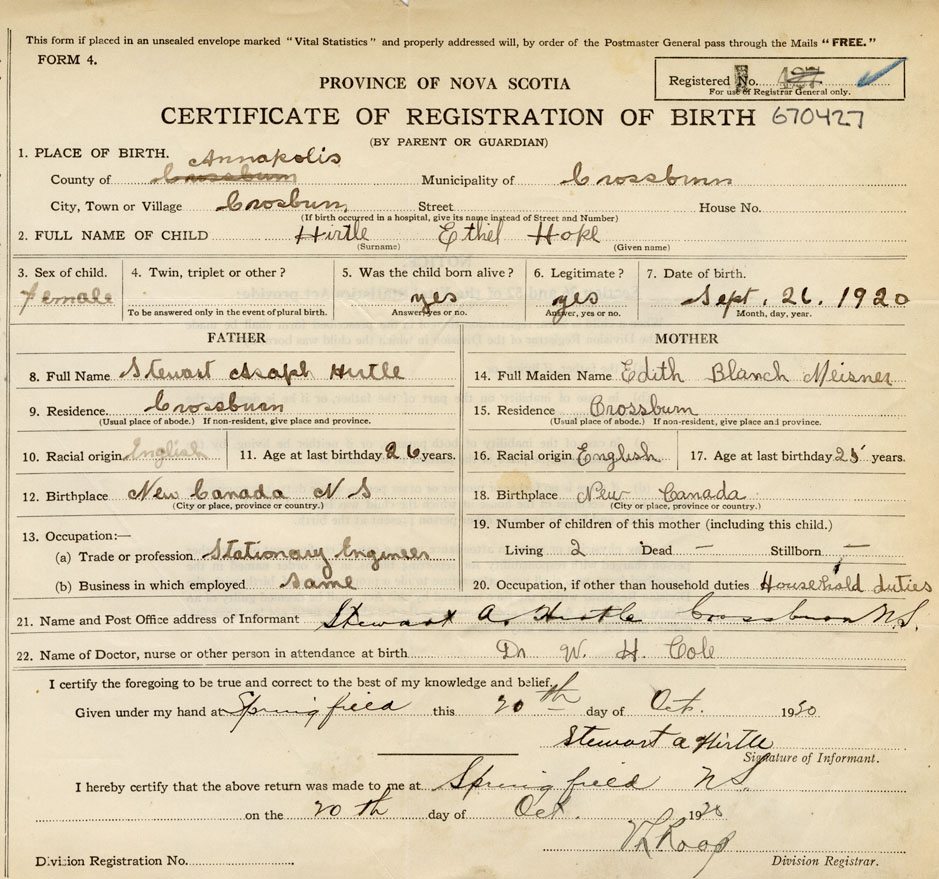 This form if placed in an unsealed envelope marked "Vital Statistics" and properly addressed will, by order of the Postmaster General pass through the Mails "FREE."
FORM 4.
PROVINCE OF NOVA SCOTIA
Registered No. 427
For use of Registrar General only.
CERTIFICATE OF REGISTRATION OF BIRTH 670427
(BY PARENT OR GUARDIAN)
1. PLACE OF BIRTH. Annapolis
County of Crossburn Municipality of Crossburn
City, Town or Village Crosburn, Street House No.
(If birth occurred in a hospital, give its name instead of Street and Number)
2. FULL NAME OF CHILD Hirtle Ethel Hope
(Surname) (Given name)
3. Sex of child. 4. Twin, triplet or other? 5. Was the child born alive? 6. Legitimate? 7. Date of birth.
Female yes yes Sept. 26. 1920
To be answered only in the event of plural birth. Answer, yes or no. Answer, yes or no. Month, day, year.
FATHER MOTHER
8. Full Name Stewart Asaph Hirtle 14. Full Maiden Name Edith Blanch Meisner
9. Residence. Crossburn 15. Residence Crossburn
(Usual place of abode.) If non-resident, give place and province. (Usual place of abode.) If non-resident, give place and province.
10. Racial origin English 11. Age at last birthday 26 years. 16. Racial origin English 17. Age at last birthday 25 years.
12. Birthplace New Canada N S 18. Birthplace New Canada
(City or place, province or country.) (City or place, province or country.)
13. Occupation:— 19. Number of children of this mother (including this child.)
(a) Trade or profession Stationary Engineer Living 2 Dead — Stillborn —
(b) Business in which employed same 20. Occupation, if other than household duties Household duties
21. Name and Post Office address of Informant Stewart A. Hirtle Crossburn N.S.
22. Name of Doctor, nurse or other person in attendance at birth Dr W. H. Cole
I certify the foregoing to be true and correct to the best of my knowledge and belief.
Given under my hand at Springfield this 20th day of Oct. 1920
Stewart A Hirtle
Signature of Informant.
I hereby certify that the above return was made to me at Springfield N.S.
on the 20th day of Oct. 1920
Roop
Division Registration No. Division Registrar.